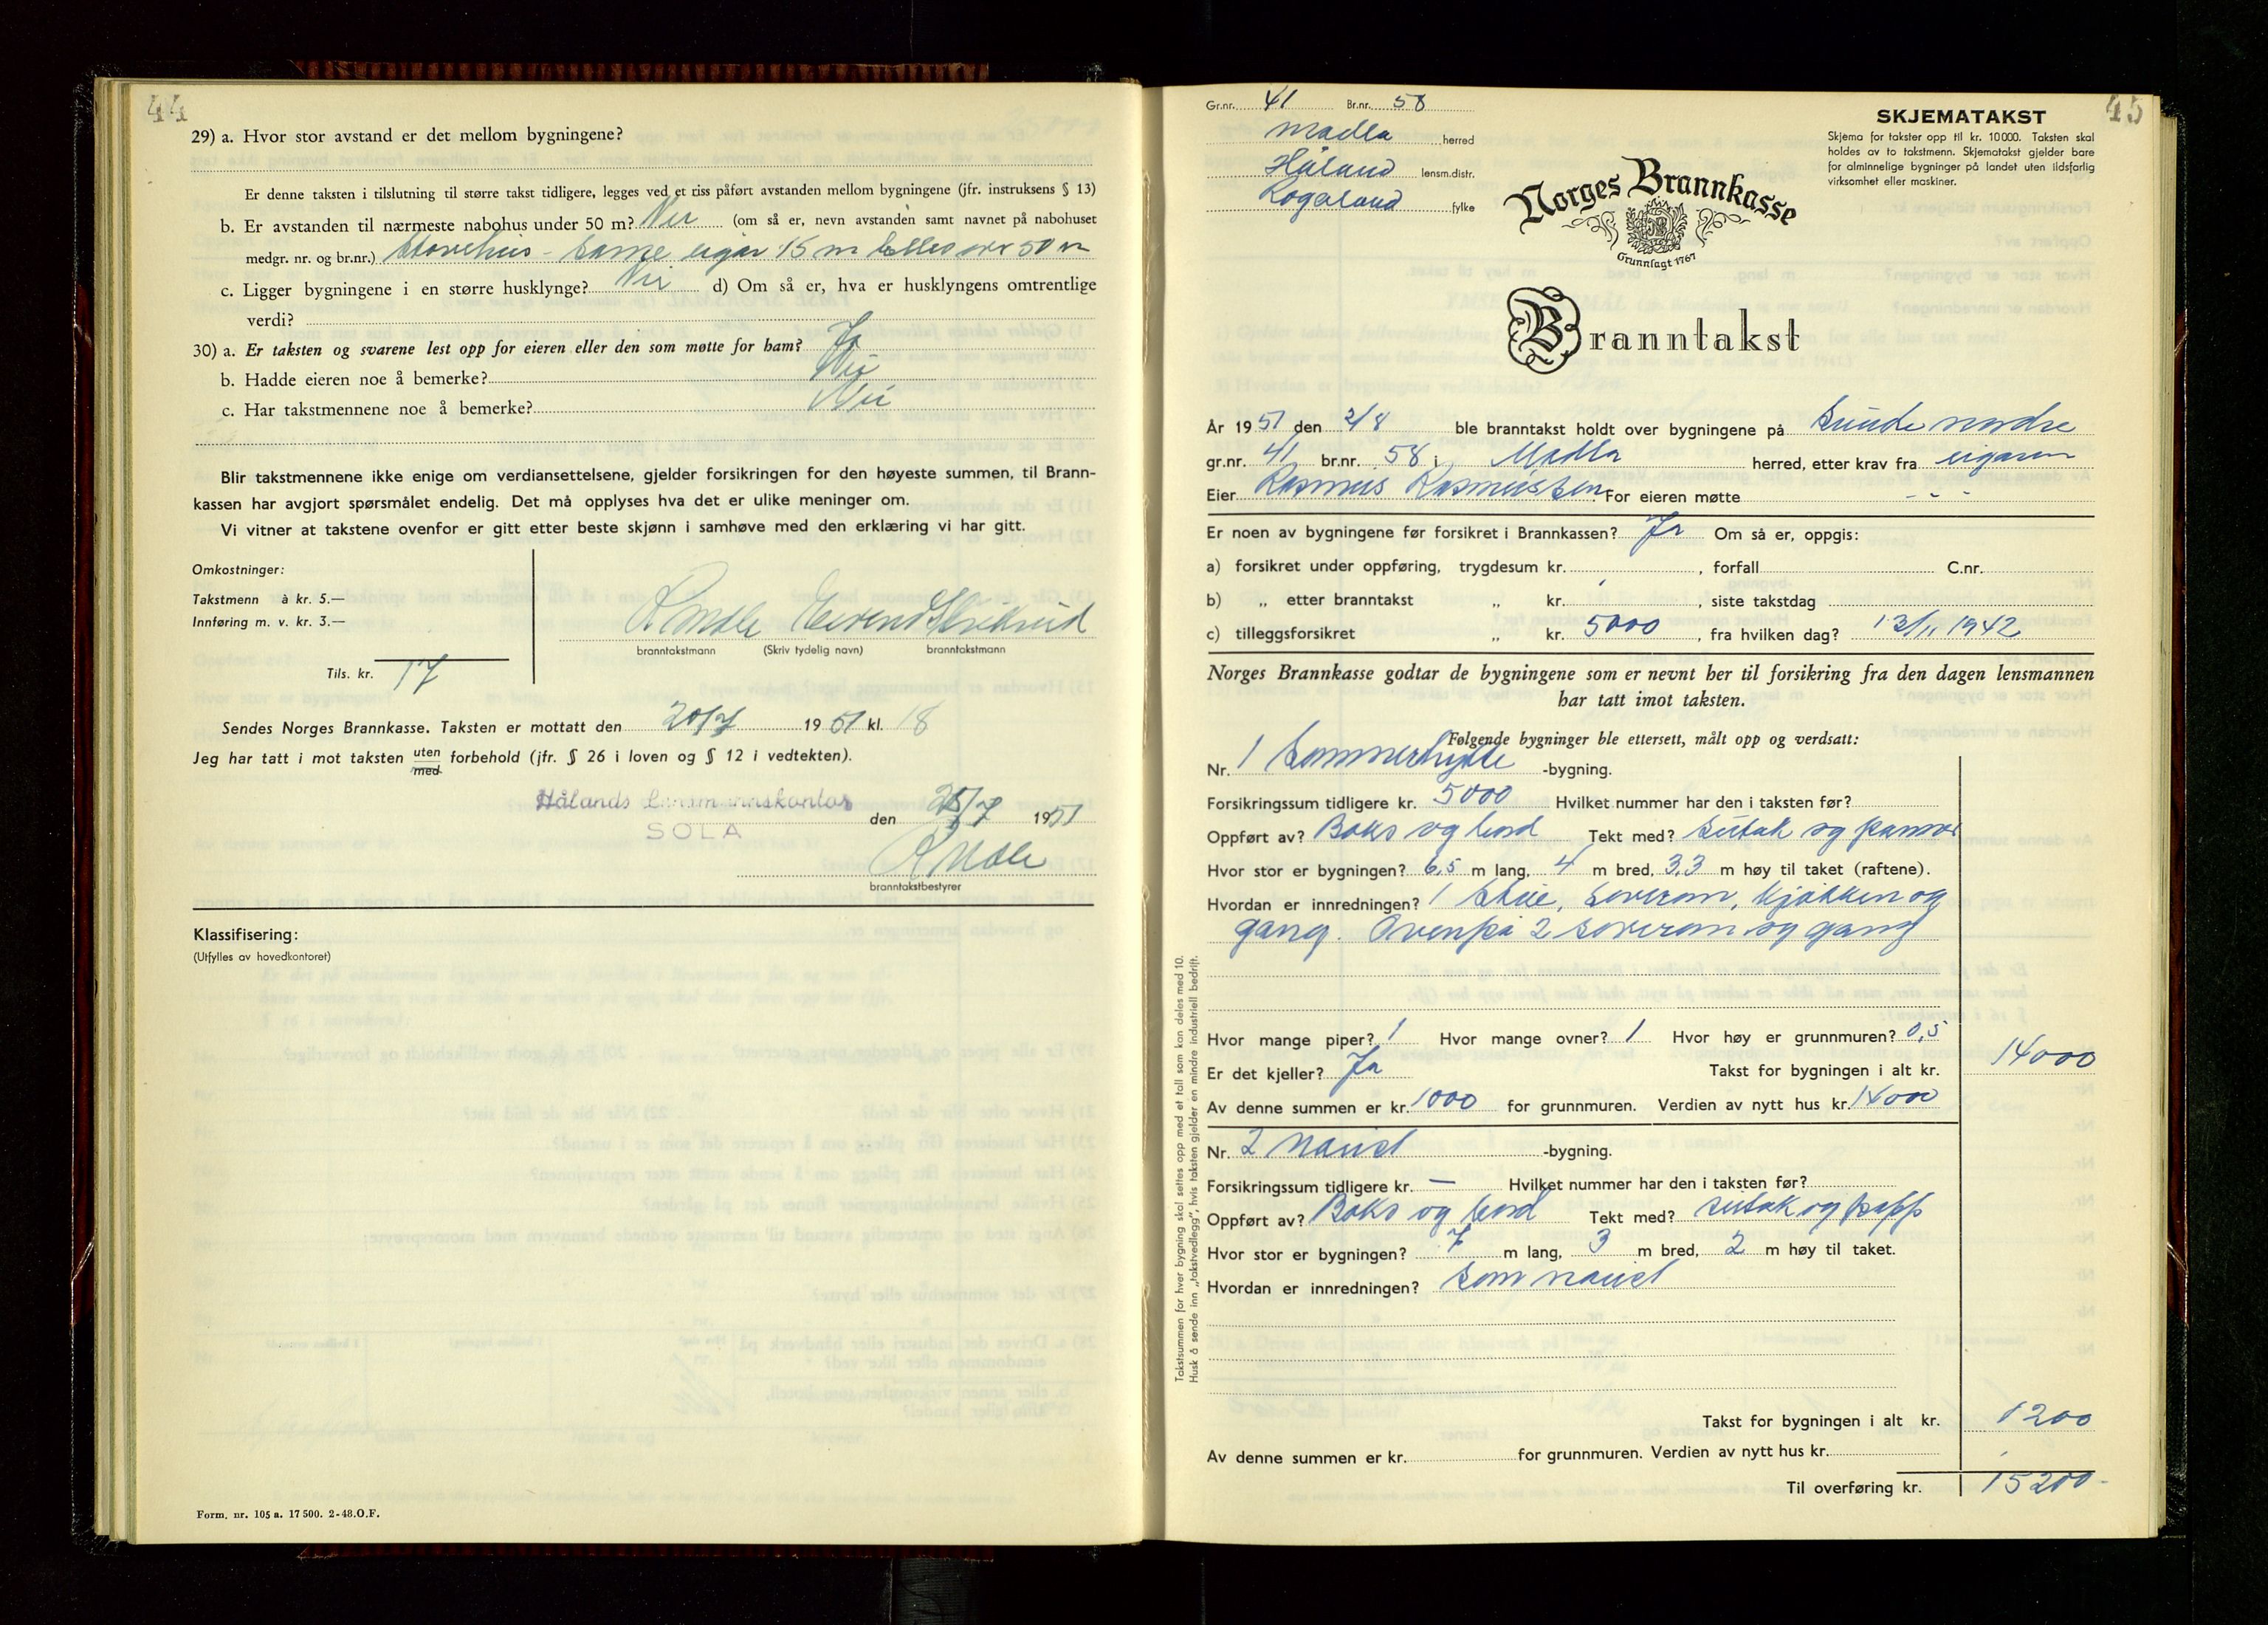 44
29) a. Hvor stor avstand er det mellom bygningene?
Er denne taksten i tilslutning til større takst tidligere, legges ved et riss påført avstanden mellom bygningene (jfr. instruksens § 13)
b. Er avstanden til nærmeste nabohus under 50 m? Nei (om så er, nevn avstanden samt navnet på nabohuset
medgr. nr. og br.nr.) Stovehus - same eigar 15 m elles over 50 m
c. Ligger bygningene i en større husklynge? Nei d) Om så er, hva er husklyngens omtrentlige
verdi?
30) a. Er taksten og svarene lest opp for eieren eller den som møtte for ham? Ja
b. Hadde eieren noe å bemerke? Nei
c. Har takstmennene noe å bemerke? Nei
Blir takstmennene ikke enige om verdiansettelsene, gjelder forsikringen for den høyeste summen, til Brann-
kassen har avgjort spørsmålet endelig. Det må opplyses hva det er ulike meninger om.
Vi vitner at takstene ovenfor er gitt etter beste skjønn i samhøve med den erklæring vi har gitt.
Omkostninger:
Takstmenn à kr. 5.—
Innføring m. v. kr. 3.—
branntakstmann (Skriv tydelig navn) branntakstmann
Tils. kr. 17
Sendes Norges Brannkasse. Taksten er mottatt den 20/7 1951 kl. 18
Jeg har tatt i mot taksten uten forbehold (jfr. § 26 i loven og § 12 i vedtekten).
med
Hålands Lensmannskontor
SOLA
den 25/7 1951
branntakstbestyrer
Klassifisering:
(Utfylles av hovedkontoret)
Form. nr. 105 a. 17 500. 2-48.O.F.
45
Gr.nr. 41 Br.nr. 58
Madla herred
Håland lensm.distr.
Rogaland fylke
SKJEMATAKST
Skjema for takster opp til kr. 10 000. Taksten skal
holdes av to takstmenn. Skjematakst gjelder bare
for alminnelige bygninger på landet uten ildsfarlig
virksomhet eller maskiner.
Norges Brannkasse
Grunnlagt 1767
Branntakst
År 1951 den 2/8 ble branntakst holdt over bygningene på Sunde nordre
gr.nr. 41 br.nr. 58 i Madla herred, etter krav fra eigaren
Eier Rasmus Rasmussen For eieren møtte - " -
Er noen av bygningene før forsikret i Brannkassen? Ja Om så er, oppgis:
a) forsikret under oppføring, trygdesum kr. , forfall C.nr.
b) „ etter branntakst „ kr. , siste takstdag
c) tilleggsforsikret „ kr. 5000, fra hvilken dag? 13/11 1942
Norges Brannkasse godtar de bygningene som er nevnt her til forsikring fra den dagen lensmannen
har tatt imot taksten.
Følgende bygninger ble ettersett, målt opp og verdsatt:
Nr. 1 Sommerhytte -bygning.
Forsikringssum tidligere kr. 5000 Hvilket nummer har den i taksten før?
Oppført av? Boks og bord Tekt med? sutak og panner
Hvor stor er bygningen? 6,5 m lang, 4 m bred, 3,3 m høy til taket (raftene).
Hvordan er innredningen? 1 stue, soverom, kjøkken og
gang. Ovenpå 2 soverom og gang
Hvor mange piper? 1 Hvor mange ovner? 1 Hvor høy er grunnmuren? 0,5
Er det kjeller? Ja Takst for bygningen i alt kr. 14000
Av denne summen er kr. 1000 for grunnmuren. Verdien av nytt hus kr. 14000
Nr. 2 Naust -bygning.
Forsikringssum tidligere kr. — Hvilket nummer har den i taksten før?
Oppført av? Boks og bord Tekt med? sutak og papp
Hvor stor er bygningen? 7 m lang, 3 m bred, 2 m høy til taket.
Hvordan er innredningen? Som naust
Takst for bygningen i alt kr. 1200
Av denne summen er kr. for grunnmuren. Verdien av nytt hus kr.
Til overføring kr. 15200-
Takstsummen for hver bygning skal settes opp med et tall som kan deles med 10.
Husk å sende inn „takstvedlegg”, hvis taksten gjelder en mindre industriell bedrift.